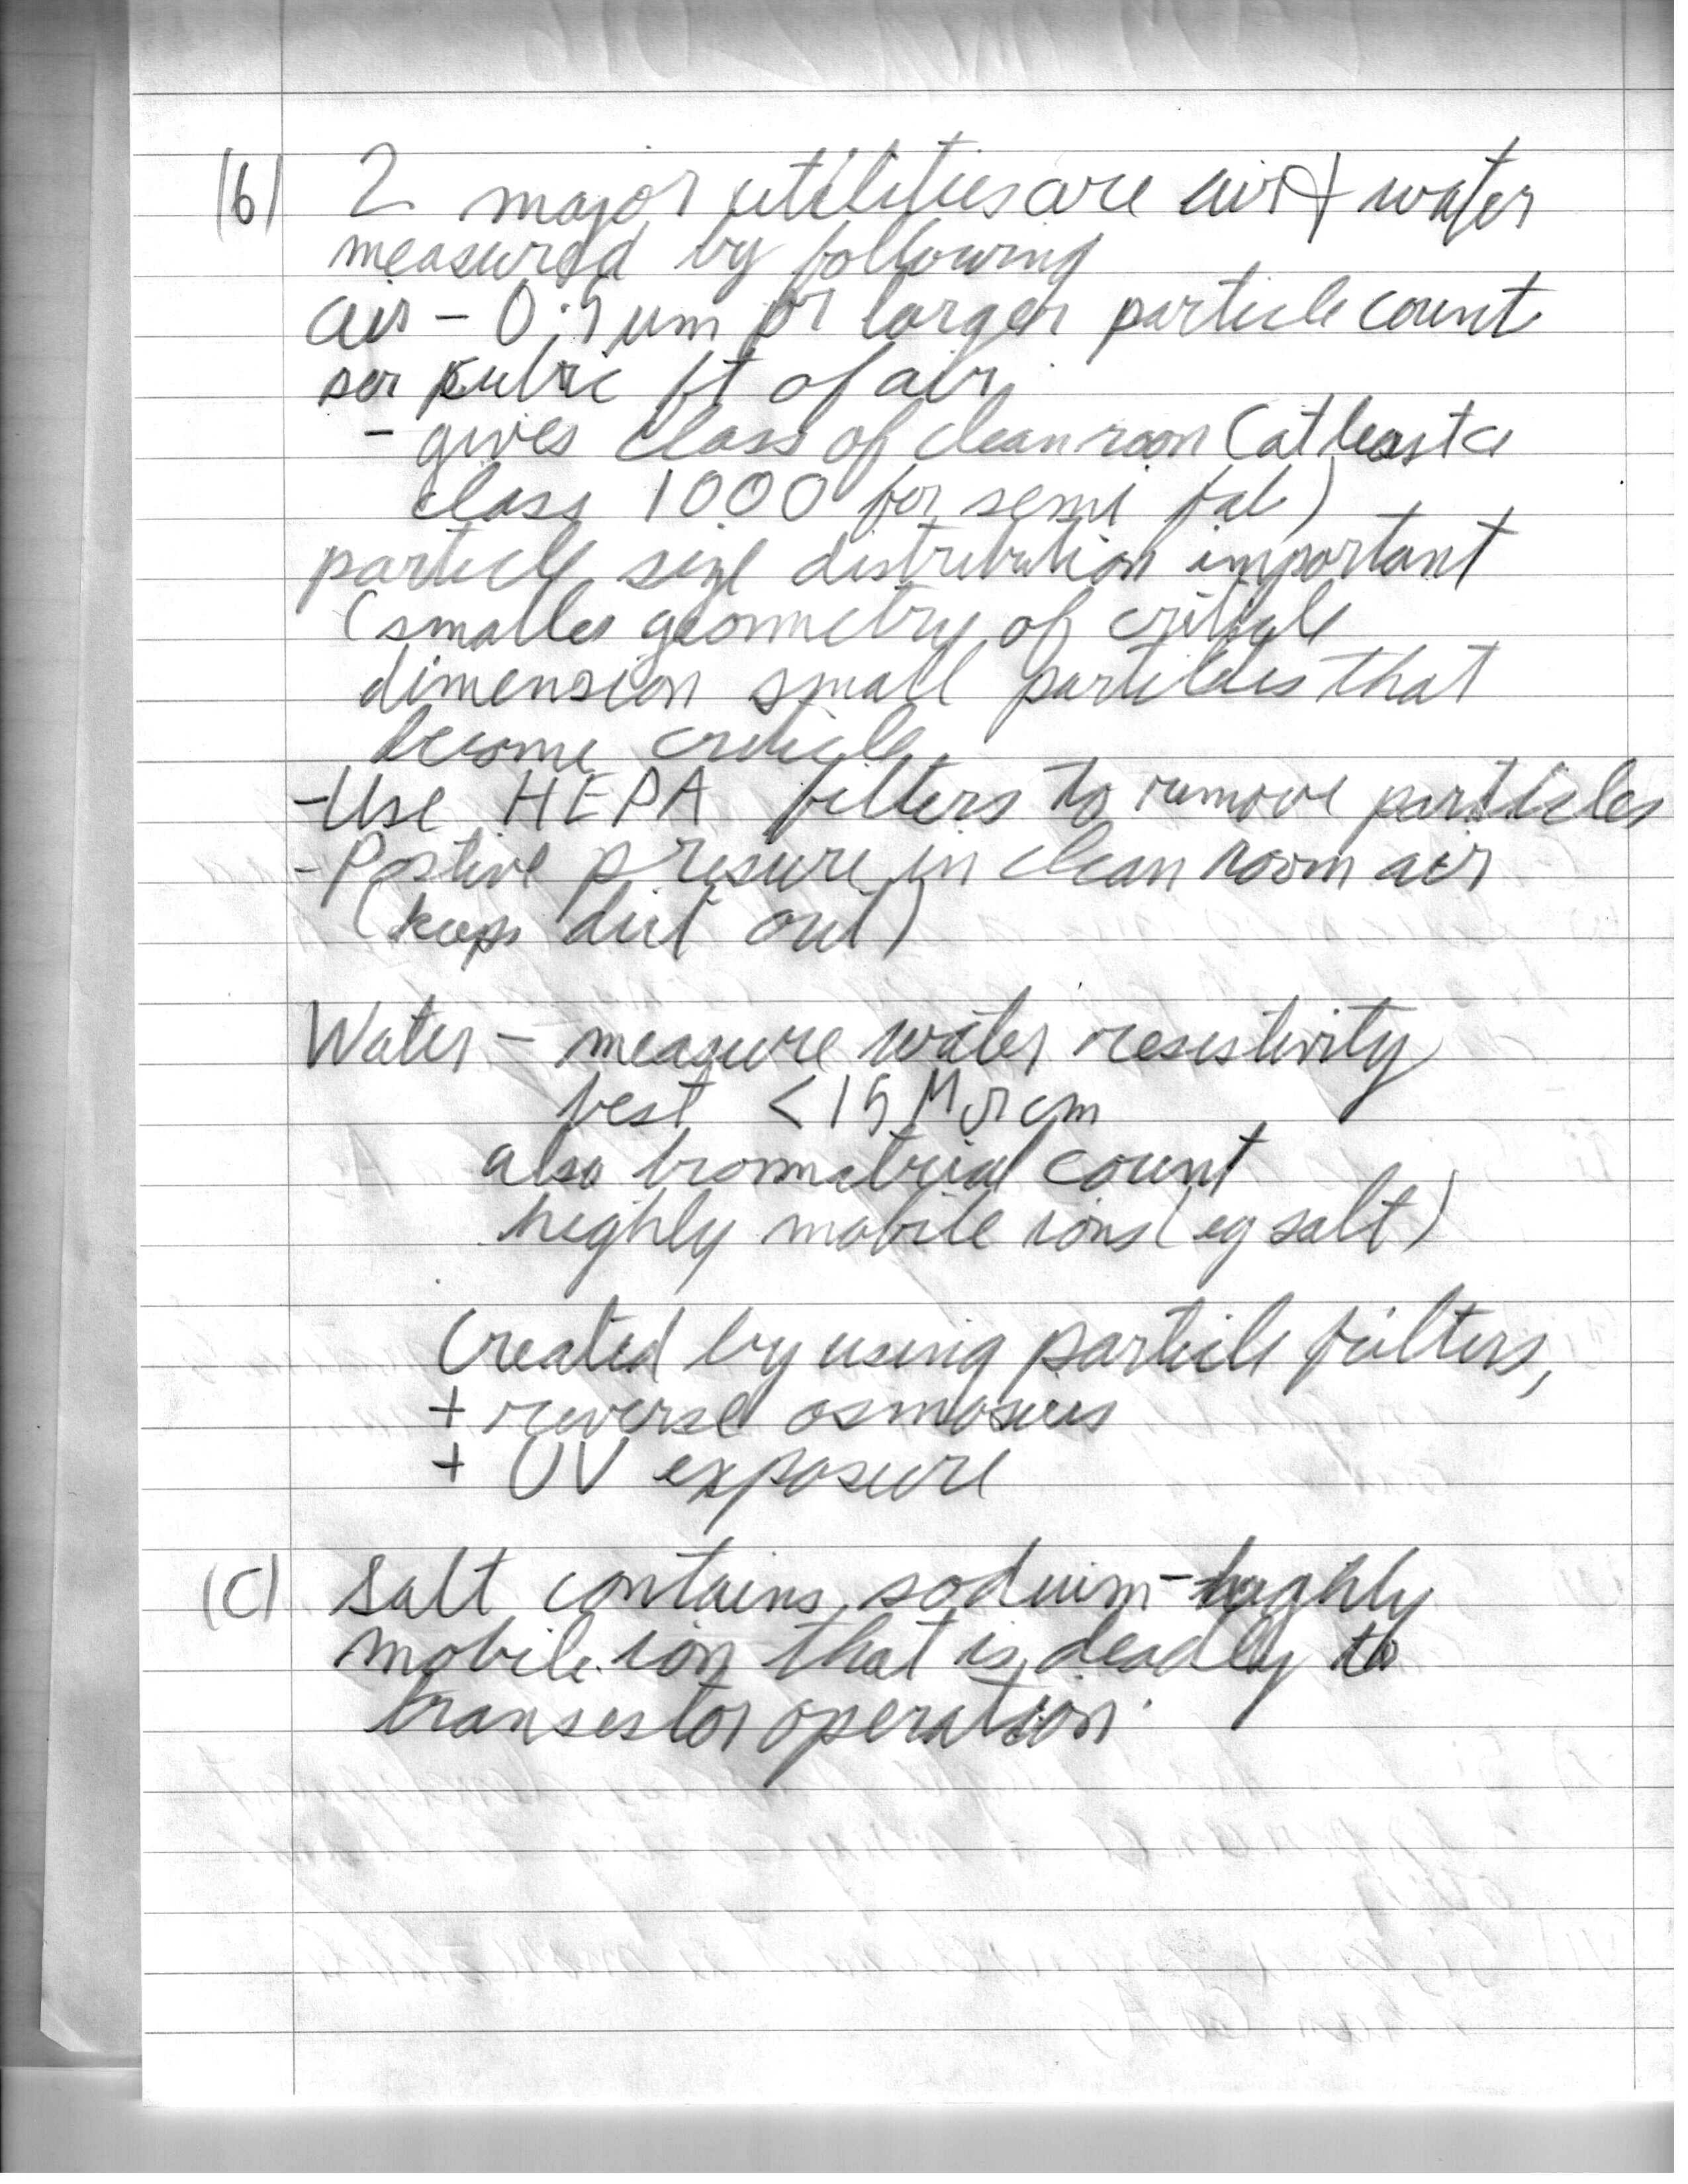 (b) 2 major utilities are air + water
measured by following
air - 0.5 um or larger particle count
per cubic ft of air
- gives class of clean room (at least a
class 1000 for semi fab)
particle size distribution important
(smaller geometry of criticle
dimension small particles that
become criticle
- Use HEPA filters to remove particles
- Postive presure in clean room air
(keeps dirt out)
Water - measure water resistivity
best < 15 M cm
also count
highly mobile ions (eg salt)
Created by using particle filters,
+ reverse osmosis
+ UV exposure
(c) Salt contains sodium - highly
mobile ion that is deadly to
transistor operation.